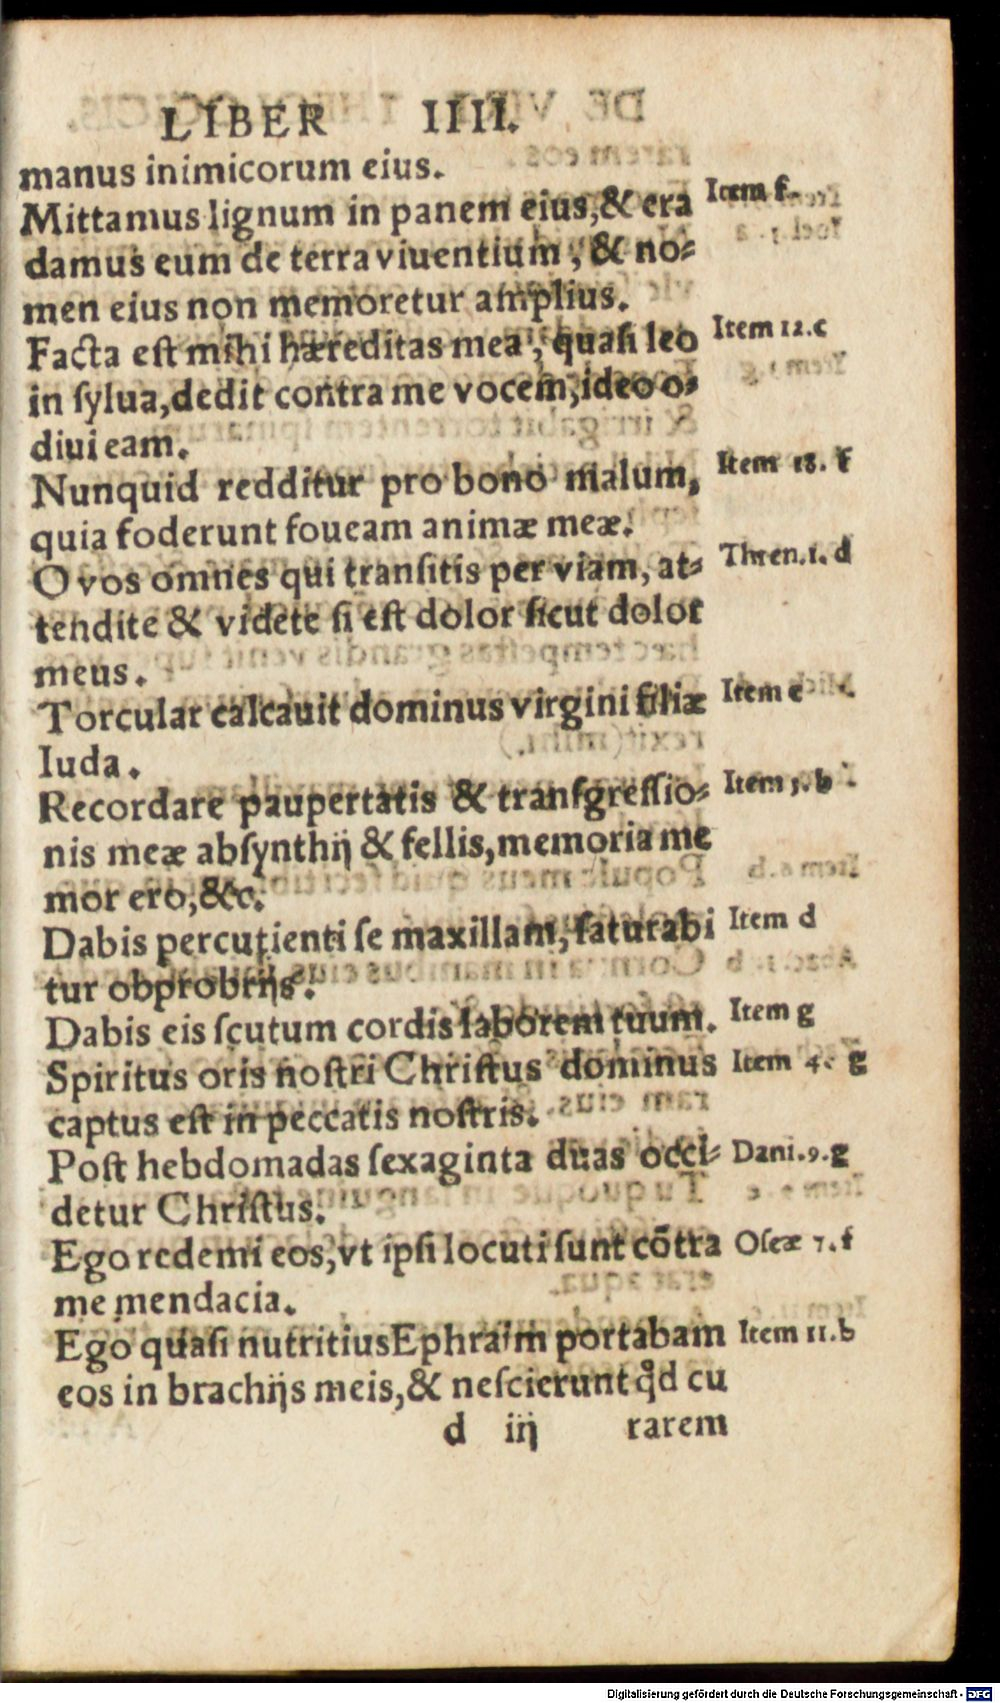 LIBER IIII.
manus inimicorum eius.
Mittamus lignum in panem eius, & era Item f.
damus eum de terra viuentium, & no⸗
men eius non memoretur amplius.
Facta eſt mihi hæreditas mea, quaſi leo Item 12.c
in ſylua, dedit contra me vocem, ideo o⸗
diui eam.
Nunquid redditur pro bono malum, Item 18. f
quia foderunt foueam animæ meæ.
O vos omnes qui tranſitis per viam, at⸗ Thren.1. d
tendite & videte ſi eſt dolor ſicut dolor
meus.
Torcular calcauit dominus virgini filiæ Item e
Iuda.
Recordare paupertatis & tranſgreſſio⸗ Item 3. b
nis meæ abſynthij & fellis, memoria me
mor ero, &c.
Dabis percutienti ſe maxillam, ſaturabi Item d
tur obprobrijs.
Dabis eis ſcutum cordis laborem tuum. Item g
Spiritus oris noſtri Chriſtus dominus Item 4. g
captus eſt in peccatis noſtris.
Poſt hebdomadas ſexaginta duas occi⸗ Dani.9.g
detur Chriſtus.
Ego redemi eos, vt ipſi locuti ſunt cōtra Oſeæ 7. f
me mendacia.
Ego quaſi nutritius Ephraim portabam Item 11.b
eos in brachijs meis, & neſcierunt qd cu
d iij rarem
Digitalisierung gefördert durch die Deutsche Forschungsgemeinschaft - DFG